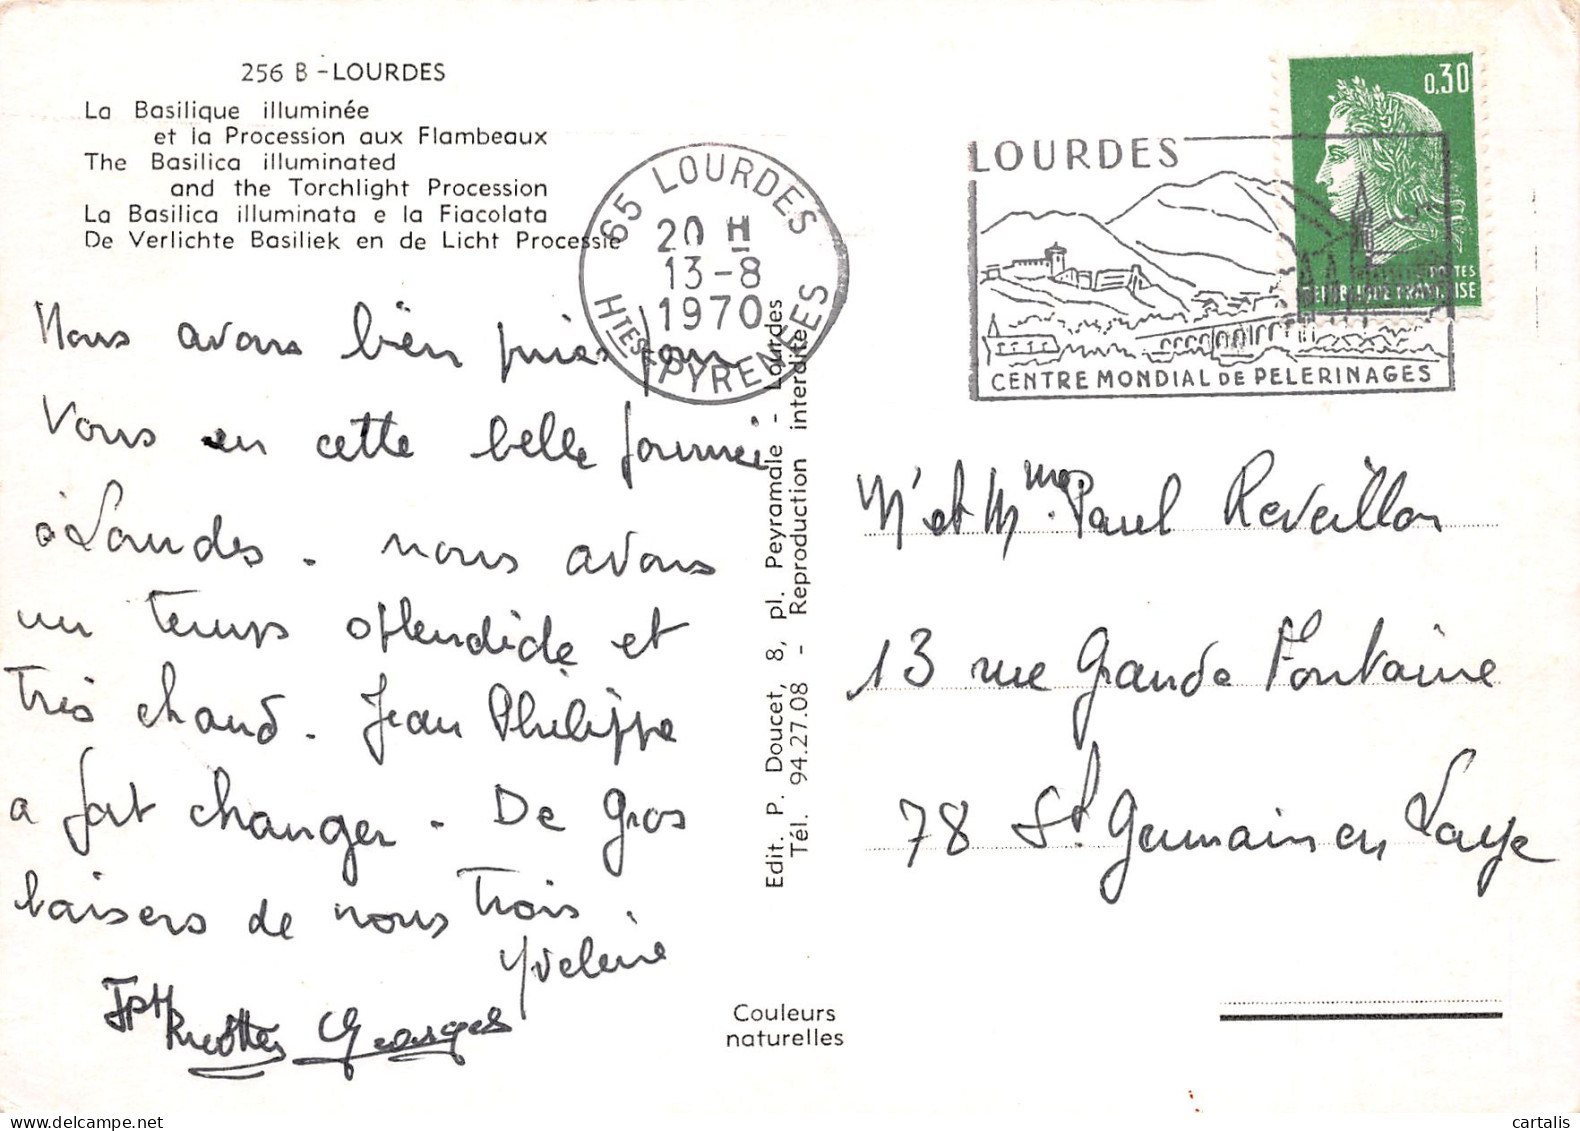 256 B - LOURDES
La Basilique illuminée
et la Procession aux Flambeaux
The Basilica illuminated
and the Torchlight Procession
La Basilica illuminata e la Fiacolata
De Verlichte Basiliek en de Licht Processie
65 LOURDES
20 H
13-8
1970
Htes PYRENEES
LOURDES
CENTRE MONDIAL DE PELERINAGES
0,30
POSTES
REPUBLIQUE FRANÇAISE
Nous avons bien priés pour
Vous en cette belle journée
à Lourdes. nous avons
un temps splendide et
très chaud. Jean Philippe
a fait changer. De Gros
baisers de nous trois
Yveline
JPH
Georges
Edit. P. Doucet, 8, pl. Peyramale - Lourdes
Tél. 94.27.08 - Reproduction interdite
Couleurs
naturelles
Mr et Mme Paul Reveillon
13 rue Grande Fontaine
78 St Germain en Laye
cartalis